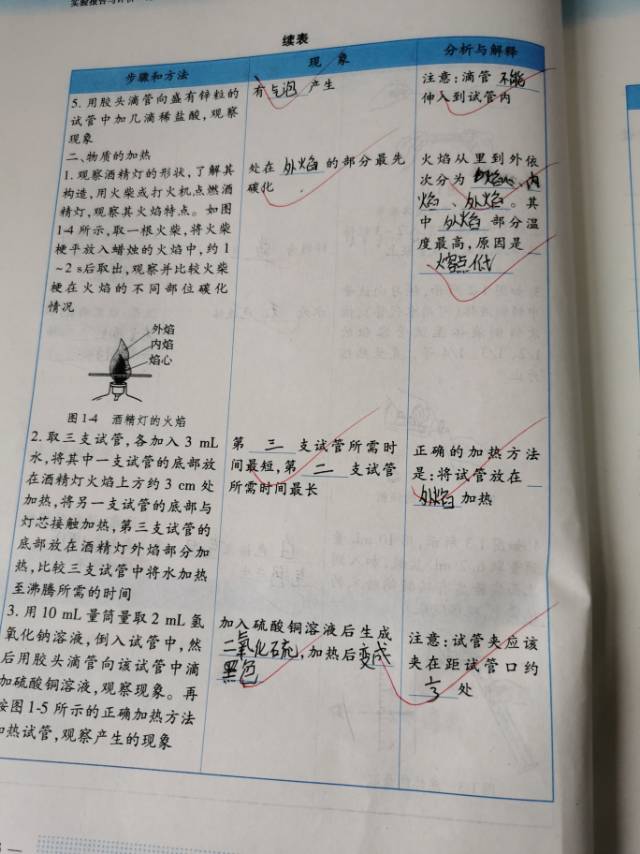 续表
步骤和方法
现 象
分析与解释
5. 用胶头滴管向盛有锌粒的
试管中加几滴稀盐酸,观察
现象
有气泡产生
注意:滴管不能
伸入到试管内
二、物质的加热
1. 观察酒精灯的形状,了解其
构造,用火柴或打火机点燃酒
精灯,观察其火焰特点。如图
1-4 所示,取一根火柴,将火柴
梗平放入蜡烛的火焰中,约 1
~2 s后取出,观察并比较火柴
梗在火焰的不同部位碳化
情况
处在 外焰 的部分最先
碳化
火焰从里到外依
次分为 焰心、内
焰、外焰。其
中 外焰 部分温
度最高,原因是
外焰
内焰
焰心
图 1-4 酒精灯的火焰
2. 取三支试管,各加入 3 mL
水,将其中一支试管的底部放
在酒精灯火焰上方约 3 cm 处
加热,将另一支试管的底部与
灯芯接触加热,第三支试管的
底部放在酒精灯外焰部分加
热,比较三支试管中将水加热
至沸腾所需的时间
第 三 支试管所需时
间最短,第 二 支试管
所需时间最长
正确的加热方法
是:将试管放在
外焰 加热
3. 用 10 mL 量筒量取 2 mL 氢
氧化钠溶液,倒入试管中,然
后用胶头滴管向该试管中滴
加硫酸铜溶液,观察现象。再
按图 1-5 所示的正确加热方法
加热试管,观察产生的现象
加入硫酸铜溶液后生成
二氧化硫,加热后变成
黑色
注意:试管夹应该
夹在距试管口约
1/3 处